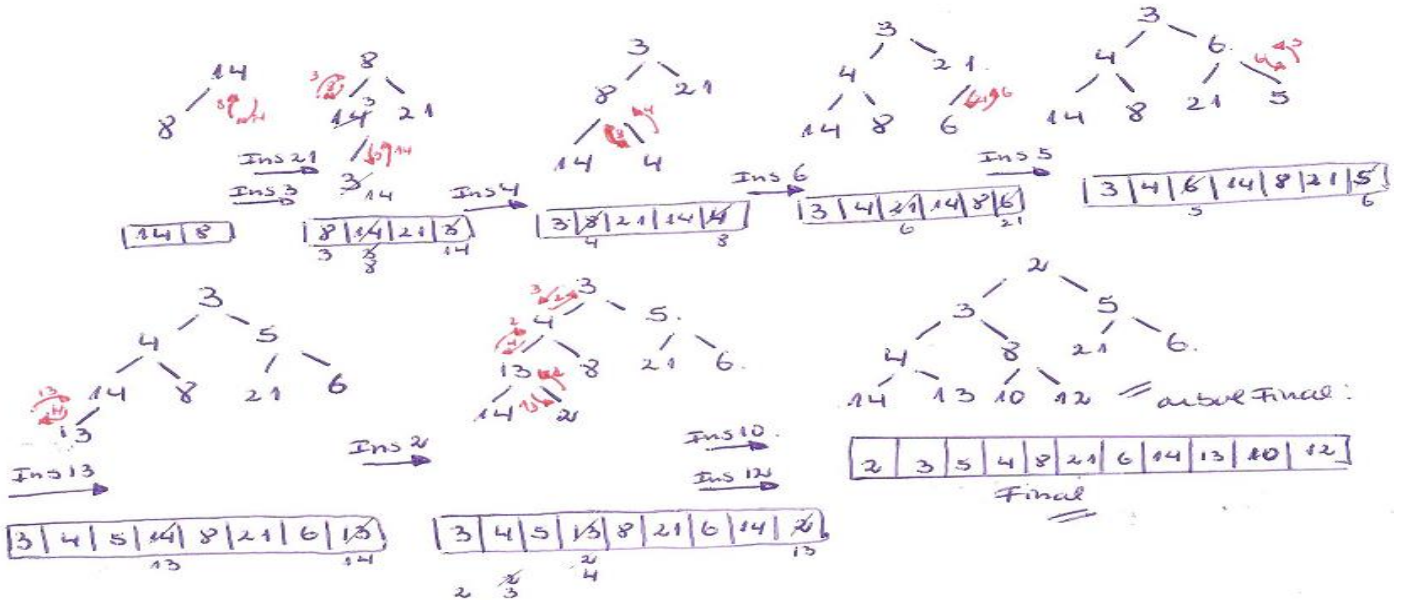 14
8
8 14
Ins 21
Ins 3
14 8
8
3
14 21
3
14
3 14
8 14 21 3
3 3 14
8
Ins 4
3
8 21
8 4
14 4
3 8 21 14 4
4 8
Ins 6
3
4 21
14 8 6
21 6
3 4 21 14 8 6
6 21
Ins 5
3
4 6
14 8 21 5
6 5
3 4 6 14 8 21 5
5 6
3
4 5
14 8 21 6
13
13 14
Ins 13
3 4 5 14 8 21 6 13
13 14
Ins 2
3
3 2
4 5
2 4
13 8 21 6
13 2
14 2
3 4 5 13 8 21 6 14 2
2 13
4
2 2
3
Ins 10
Ins 12
2
3 5
4 8 21 6
14 13 10 12 arbol Final:
2 3 5 4 8 21 6 14 13 10 12
Final